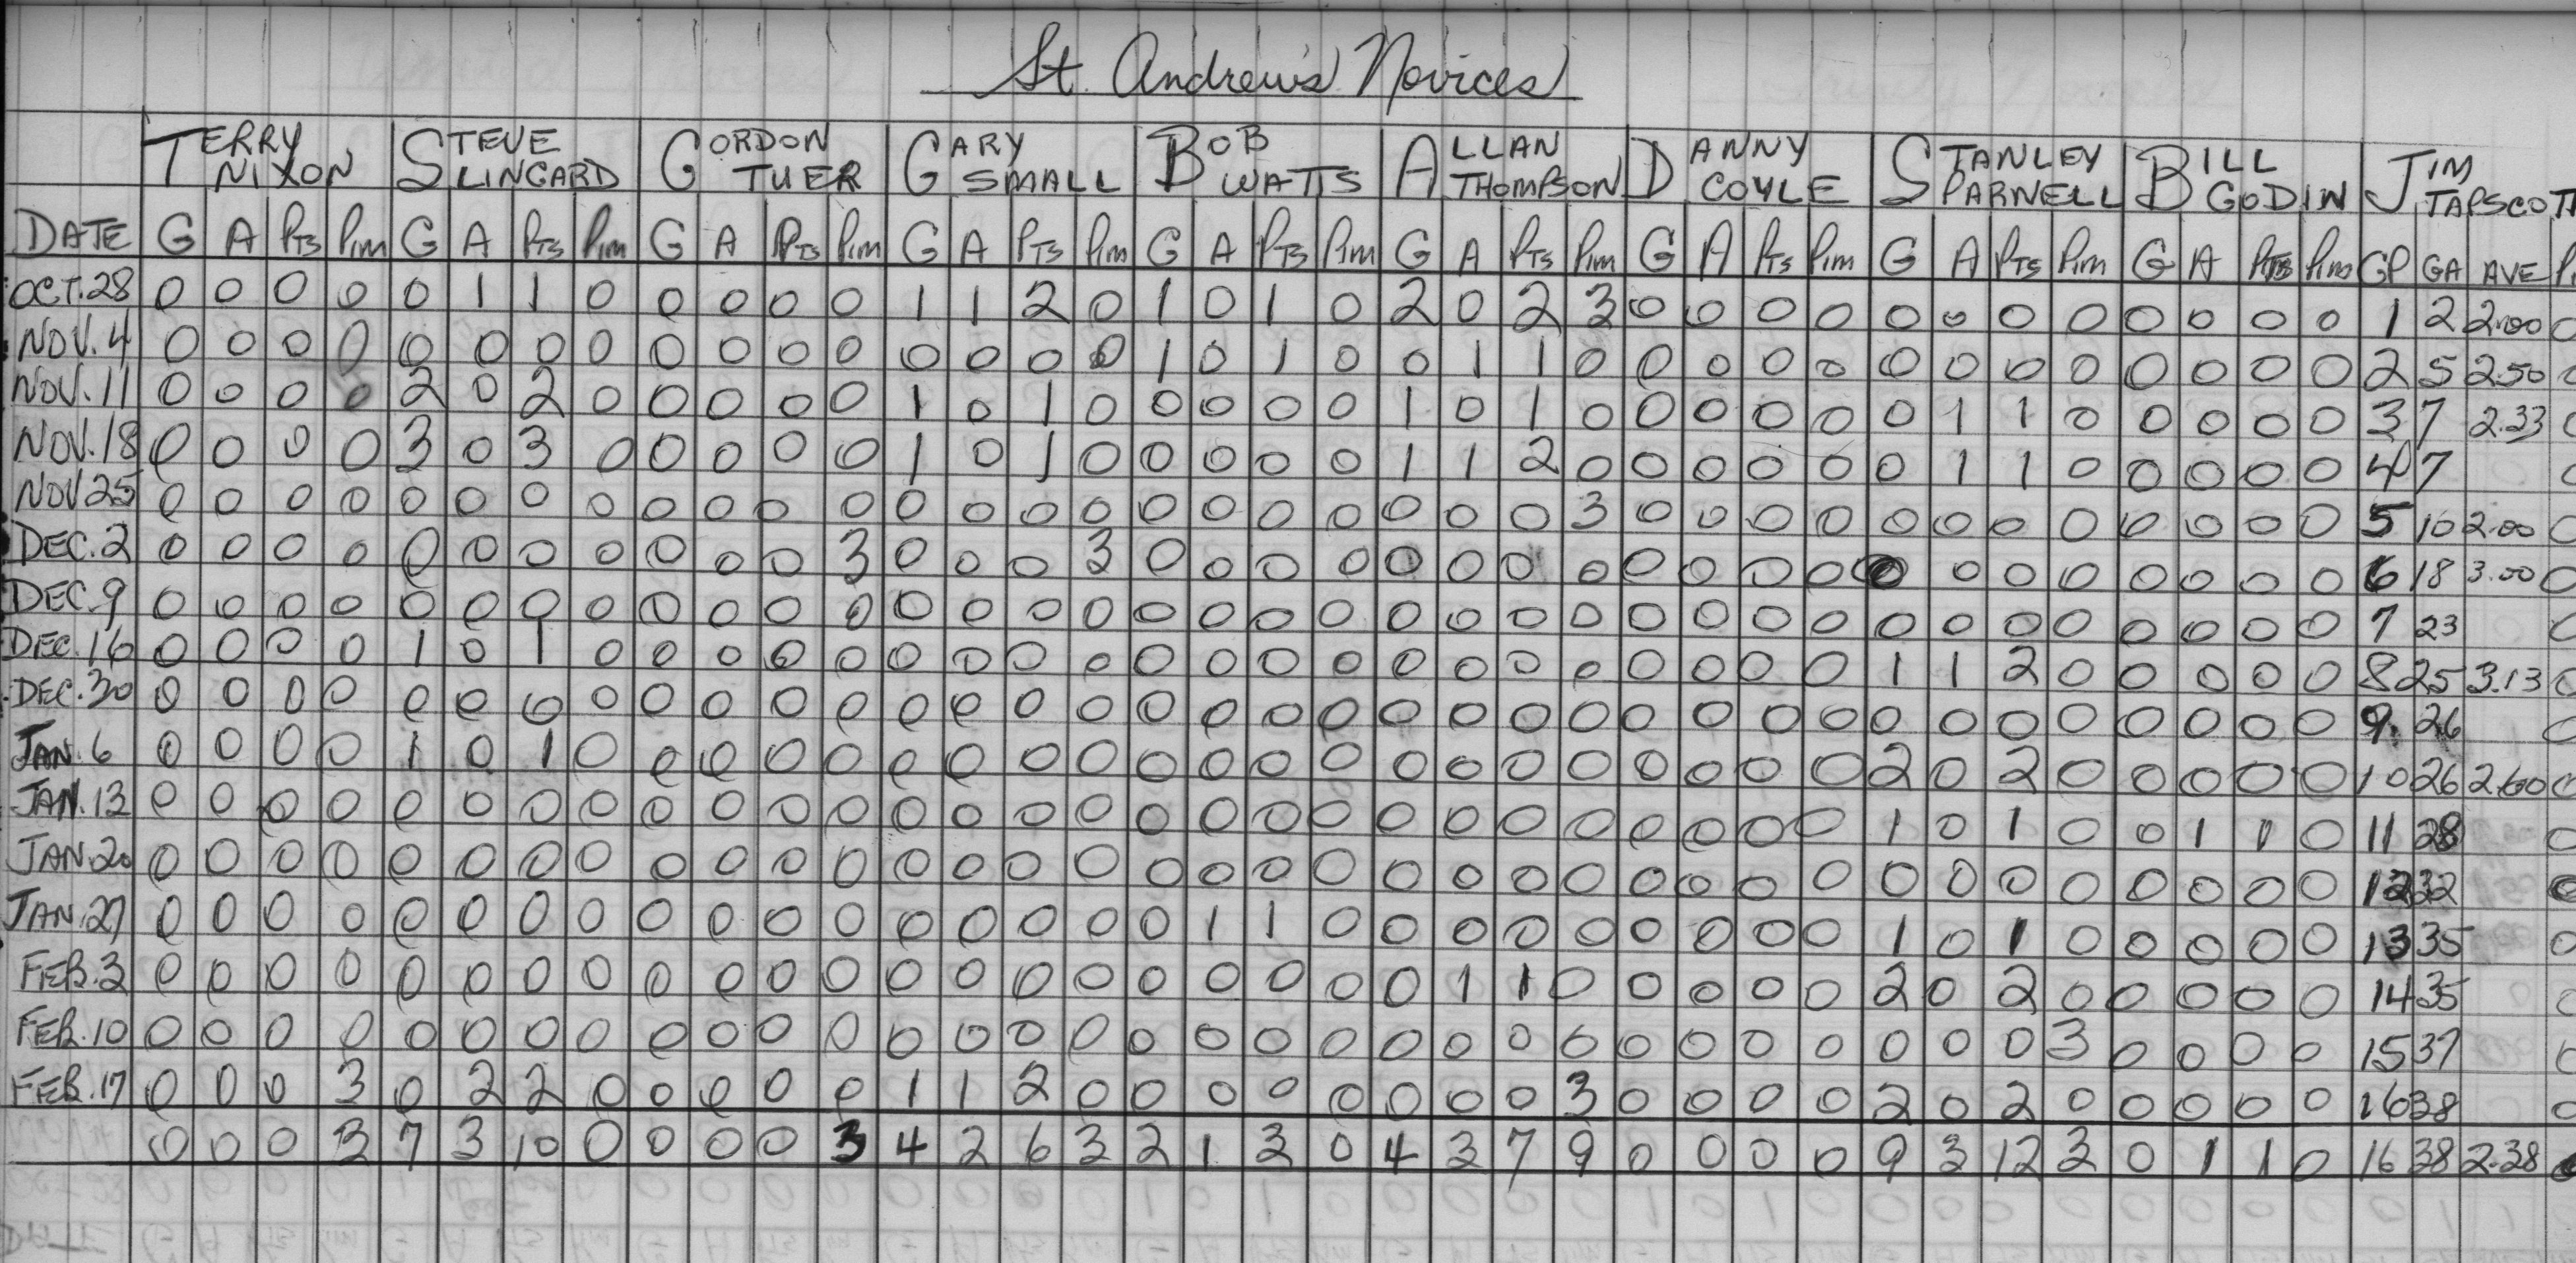 St. Andrew's Novices
TERRY NIXON STEVE LINGARD GORDON TUER GARY SMALL BOB WATTS ALLAN THOMPSON DANNY COYLE STANLEY PARNELL BILL GODIN JIM TAPSCOTT
DATE G A PTS Pim G A PTS Pim G A PTS Pim G A PTS Pim G A PTS Pim G A PTS Pim G A PTS Pim G A PTS Pim G A PTS Pim GP GA AVE
OCT.28 0 0 0 0 0 1 1 0 0 0 0 0 1 1 2 0 1 0 1 0 2 0 2 3 0 0 0 0 0 0 0 0 0 0 0 0 1 2 2.00
NOV.4 0 0 0 0 0 0 0 0 0 0 0 0 0 0 0 0 1 0 1 0 0 1 1 0 0 0 0 0 0 0 0 0 0 0 0 0 2 5 2.50
NOV.11 0 0 0 0 2 0 2 0 0 0 0 0 1 0 1 0 0 0 0 0 1 0 1 0 0 0 0 0 0 1 1 0 0 0 0 0 3 7 2.33
NOV.18 0 0 0 0 3 0 3 0 0 0 0 0 1 0 1 0 0 0 0 0 1 1 2 0 0 0 0 0 0 1 1 0 0 0 0 0 4 7
NOV 25 0 0 0 0 0 0 0 0 0 0 0 0 0 0 0 0 0 0 0 0 0 0 0 3 0 0 0 0 0 0 0 0 0 0 0 0 5 10 2.00
DEC.2 0 0 0 0 0 0 0 0 0 0 0 3 0 0 0 3 0 0 0 0 0 0 0 0 0 0 0 0 0 0 0 0 0 0 0 0 6 18 3.00
DEC.9 0 0 0 0 0 0 0 0 0 0 0 0 0 0 0 0 0 0 0 0 0 0 0 0 0 0 0 0 0 0 0 0 0 0 0 0 7 23
DEC.16 0 0 0 0 1 0 1 0 0 0 0 0 0 0 0 0 0 0 0 0 0 0 0 0 0 0 0 0 1 1 2 0 0 0 0 0 8 25 3.13
DEC.30 0 0 0 0 0 0 0 0 0 0 0 0 0 0 0 0 0 0 0 0 0 0 0 0 0 0 0 0 0 0 0 0 0 0 0 0 9 26
JAN.6 0 0 0 0 1 0 1 0 0 0 0 0 0 0 0 0 0 0 0 0 0 0 0 0 0 0 0 0 2 0 2 0 0 0 0 0 10 26 2.60
JAN.13 0 0 0 0 0 0 0 0 0 0 0 0 0 0 0 0 0 0 0 0 0 0 0 0 0 0 0 0 1 0 1 0 0 1 1 0 11 28
JAN.20 0 0 0 0 0 0 0 0 0 0 0 0 0 0 0 0 0 0 0 0 0 0 0 0 0 0 0 0 0 0 0 0 0 0 0 0 12 32
JAN.27 0 0 0 0 0 0 0 0 0 0 0 0 0 0 0 0 0 1 1 0 0 0 0 0 0 0 0 0 1 0 1 0 0 0 0 0 13 35
FEB.3 0 0 0 0 0 0 0 0 0 0 0 0 0 0 0 0 0 0 0 0 0 1 1 0 0 0 0 0 2 0 2 0 0 0 0 0 14 35
FEB.10 0 0 0 0 0 0 0 0 0 0 0 0 0 0 0 0 0 0 0 0 0 0 0 0 0 0 0 0 0 0 0 3 0 0 0 0 15 37
FEB.17 0 0 0 3 0 2 2 0 0 0 0 0 1 1 2 0 0 0 0 0 0 0 0 3 0 0 0 0 2 0 2 0 0 0 0 0 16 38
0 0 0 3 7 3 10 0 0 0 0 3 4 2 6 3 2 1 3 0 4 3 7 9 0 0 0 0 9 3 12 3 0 1 1 0 16 38 2.38